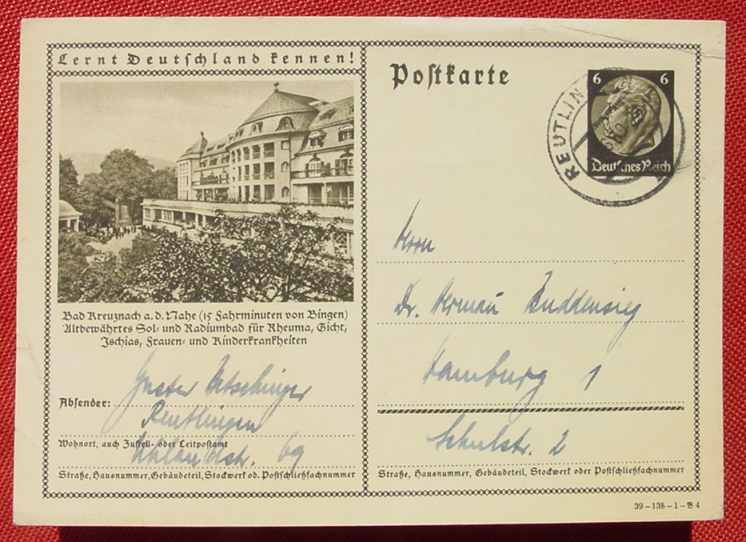 Lernt Deutschland kennen!
Bad Kreuznach a. d. Nahe (15 Fahrminuten von Bingen)
Altbewährtes Sol- und Radiumbad für Rheuma, Gicht,
Ischias, Frauen- und Kinderkrankheiten
Absender:
Reutlingen
Wohnort, auch Zustell- oder Leitpostamt
Straße, Hausnummer, Gebäudeteil, Stockwerk od. Postschließfachnummer
Postkarte
6 6
Deutsches Reich
REUTLIN
Herrn
Dr. Herman Buddensieg
Hamburg 1
Schulstr. 2
Straße, Hausnummer, Gebäudeteil, Stockwerk oder Postschließfachnummer
39-138-1-B4